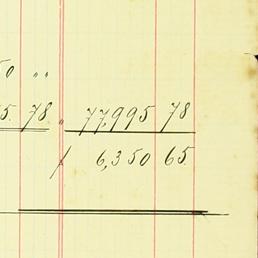 50 〃
5. 78 〃 77,995 78
/ 6,350 65